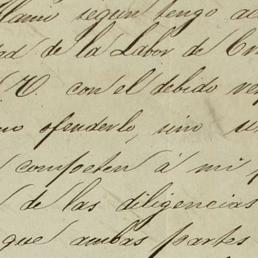 segun tengo
de la Labor de
con el debido
ofenderlo, sino
competen á mi
de las diligencias
que ambas partes